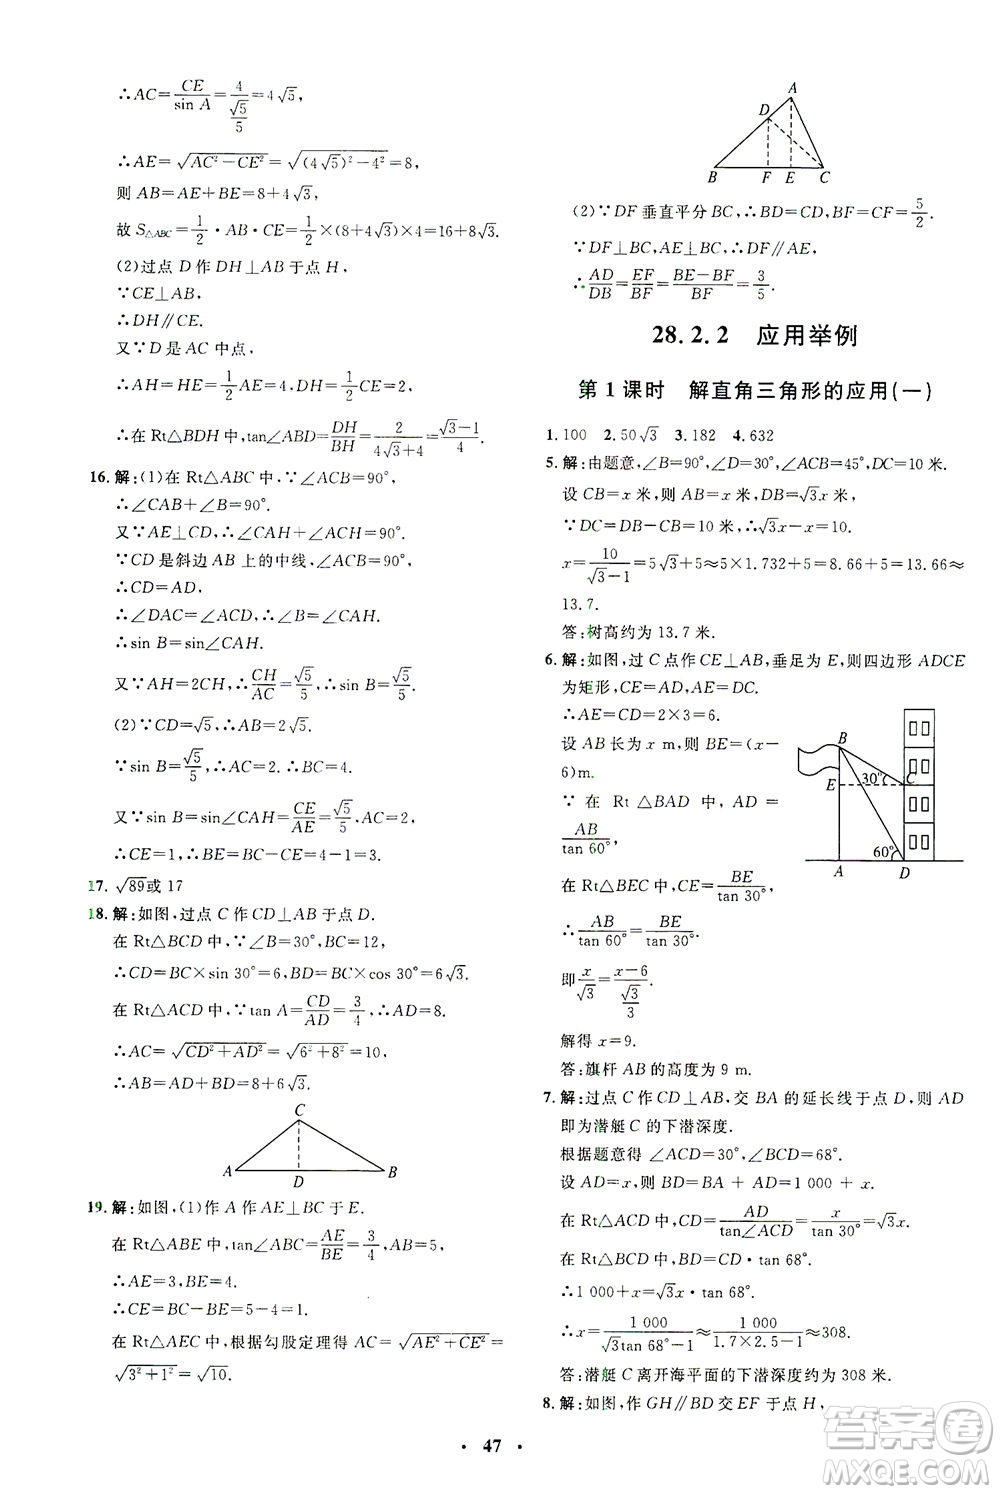 ∴AC=CE/sin A=4/(√5/5)=4√5,
∴AE=√(AC²-CE²)=√((4√5)²-4²)=8,
则 AB=AE+BE=8+4√3,
故 S△ABC=1/2·AB·CE=1/2×(8+4√3)×4=16+8√3.
(2)过点 D 作 DH⊥AB 于点 H,
∵CE⊥AB,
∴DH∥CE.
又∵D 是 AC 中点,
∴AH=HE=1/2AE=4,DH=1/2CE=2,
∴在 Rt△BDH 中,tan∠ABD=DH/BH=2/(4√3+4)=(√3-1)/4.
16.解:(1)在 Rt△ABC 中,∵∠ACB=90°,
∴∠CAB+∠B=90°.
又∵AE⊥CD,∴∠CAH+∠ACH=90°.
∵CD 是斜边 AB 上的中线,∠ACB=90°,
∴CD=AD,
∴∠DAC=∠ACD,∴∠B=∠CAH,
∴sin B=sin∠CAH.
又∵AH=2CH,∴CH/AC=√5/5,∴sin B=√5/5.
(2)∵CD=√5,∴AB=2√5.
∵sin B=√5/5,∴AC=2.∴BC=4.
又∵sin B=sin∠CAH=CE/AE=√5/5,AC=2,
∴CE=1,∴BE=BC-CE=4-1=3.
17.√89或 17
18.解:如图,过点 C 作 CD⊥AB 于点 D.
在 Rt△BCD 中,∵∠B=30°,BC=12,
∴CD=BC×sin 30°=6,BD=BC×cos 30°=6√3.
在 Rt△ACD 中,∵tan A=CD/AD=3/4,∴AD=8.
∴AC=√(CD²+AD²)=√(6²+8²)=10,
∴AB=AD+BD=8+6√3.
C
A D B
19.解:如图,(1)作 A 作 AE⊥BC 于 E.
在 Rt△ABE 中,tan∠ABC=AE/BE=3/4,AB=5,
∴AE=3,BE=4.
∴CE=BC-BE=5-4=1,
在 Rt△AEC 中,根据勾股定理得 AC=√(AE²+CE²)=
√(3²+1²)=√10.
A
D
B F E C
(2)∵DF 垂直平分 BC,∴BD=CD,BF=CF=5/2.
∵DF⊥BC,AE⊥BC,∴DF∥AE.
∴AD/DB=EF/BF=(BE-BF)/BF=3/5.
28.2.2 应用举例
第 1 课时 解直角三角形的应用(一)
1.100 2.50√3 3.182 4.632
5.解:由题意,∠B=90°,∠D=30°,∠ACB=45°,DC=10 米.
设 CB=x 米,则 AB=x 米,DB=√3x 米,
∵DC=DB-CB=10 米,∴√3x-x=10.
x=10/(√3-1)=5√3+5≈5×1.732+5=8.66+5=13.66≈
13.7.
答:树高约为 13.7 米.
6.解:如图,过 C 点作 CE⊥AB,垂足为 E,则四边形 ADCE
为矩形,CE=AD,AE=DC.
∴AE=CD=2×3=6.
设 AB 长为 x m,则 BE=(x-
6)m.
∵ 在 Rt △BAD 中,AD=
AB/tan 60°,
在 Rt△BEC 中,CE=BE/tan 30°,
∴AB/tan 60°=BE/tan 30°.
即x/√3=(x-6)/(√3/3).
解得 x=9.
答:旗杆 AB 的高度为 9 m.
B
E 30° C
60°
A D
7.解:过点 C 作 CD⊥AB,交 BA 的延长线于点 D,则 AD
即为潜艇 C 的下潜深度.
根据题意得 ∠ACD=30°,∠BCD=68°.
设 AD=x,则 BD=BA+AD=1 000+x.
在 Rt△ACD 中,CD=AD/tan∠ACD=x/tan 30°=√3x.
在 Rt△BCD 中,BD=CD·tan 68°.
∴1 000+x=√3x·tan 68°.
∴x=1 000/(√3tan 68°-1)≈1 000/(1.7×2.5-1)≈308.
答:潜艇 C 离开海平面的下潜深度约为 308 米.
8.解:如图,作 GH∥BD 交 EF 于点 H,
· 47 ·
答案圈
MXQE.COM